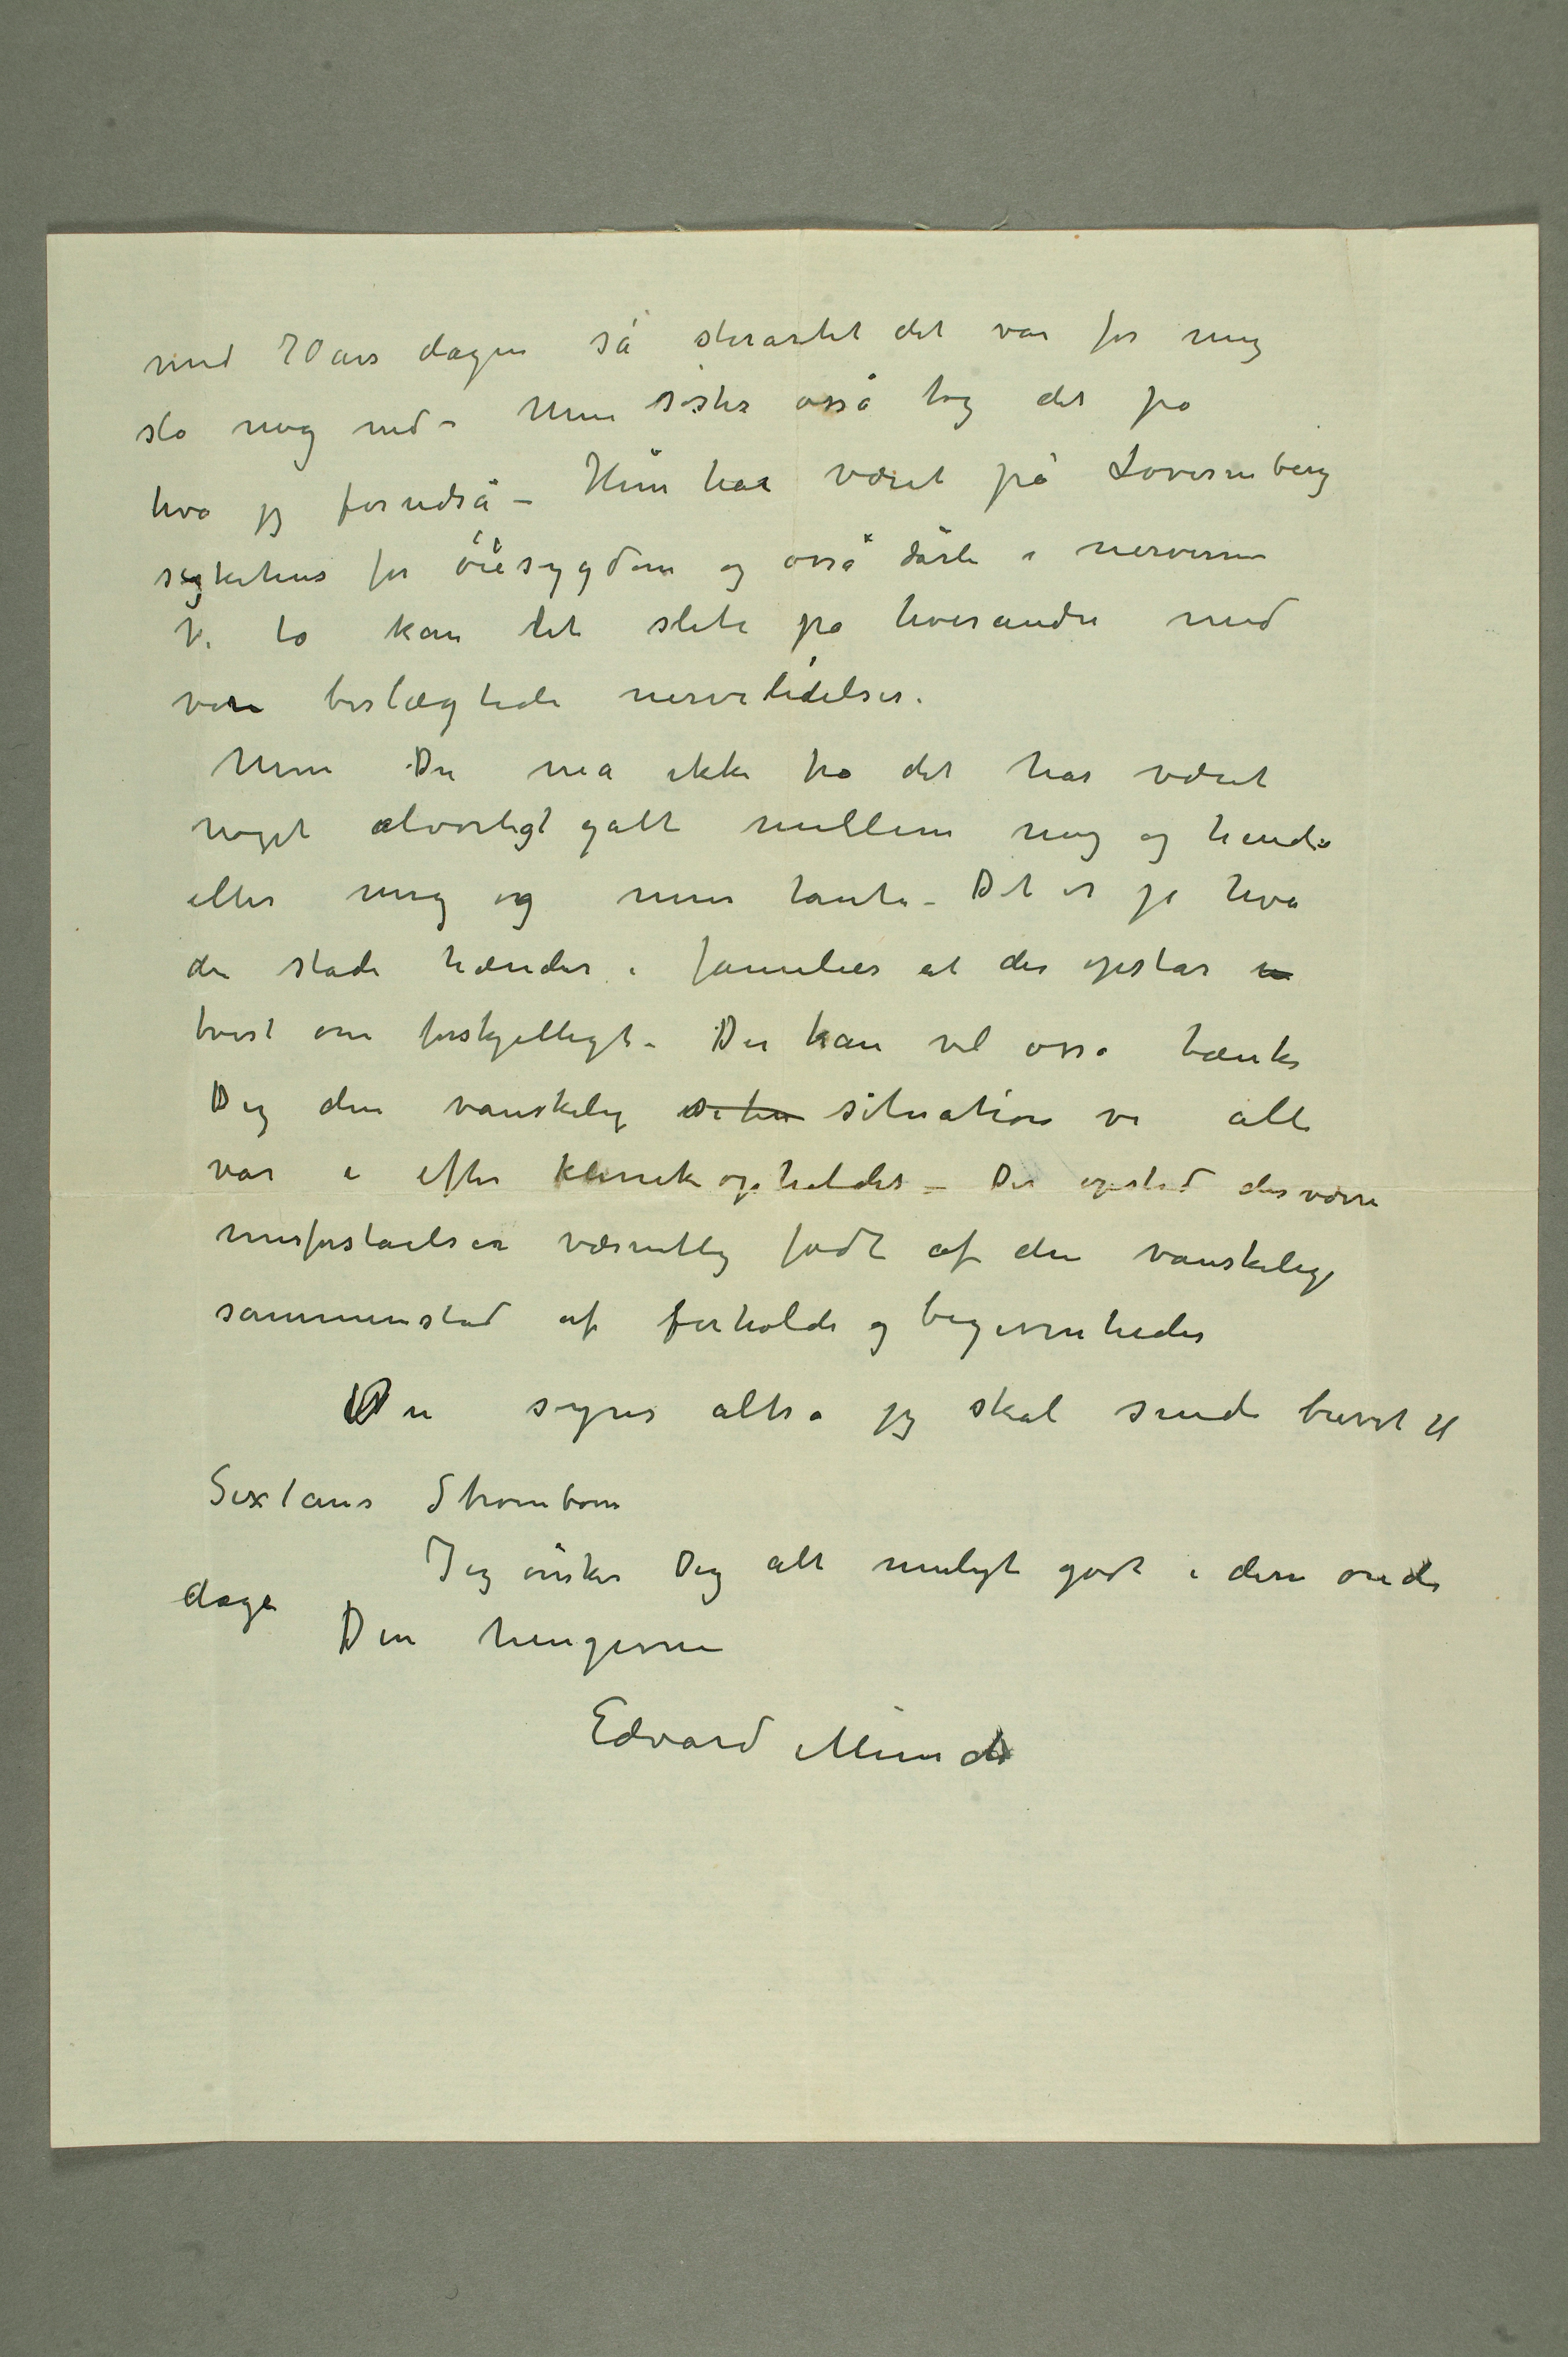 med 70 års dagen så storartet det var for mig
slo mig ned – Min søster osså tog det på
hva jeg forudså – Hun har været på Lovisenberg
sygkehus for öiesygdom og osså dårli i nerverne
Vi to kan let slite på hverandre med
vore beslægtede nervelidelser.
Men Du må ikke tro det har været
noget alvorligt galt mellem mig og hende
eller mig og min tante – Det er jo hva
der stadi hænder i familier at der opstår
tvist om forskjelligt – Du kan vel osså tænke
Dig den vanskelig situation vi alle
var i efter klinikopholdet – Der opstod desværre
misforståelser væsentlig født af den vanskelige
sammenstød af forholde og begivenheder
Du synes altså jeg skal sende brevet til
Sextans Strømbom
Jeg ønsker Dig alt muligt godt i disse onde
dage
Din hengivne
Edvard Munch